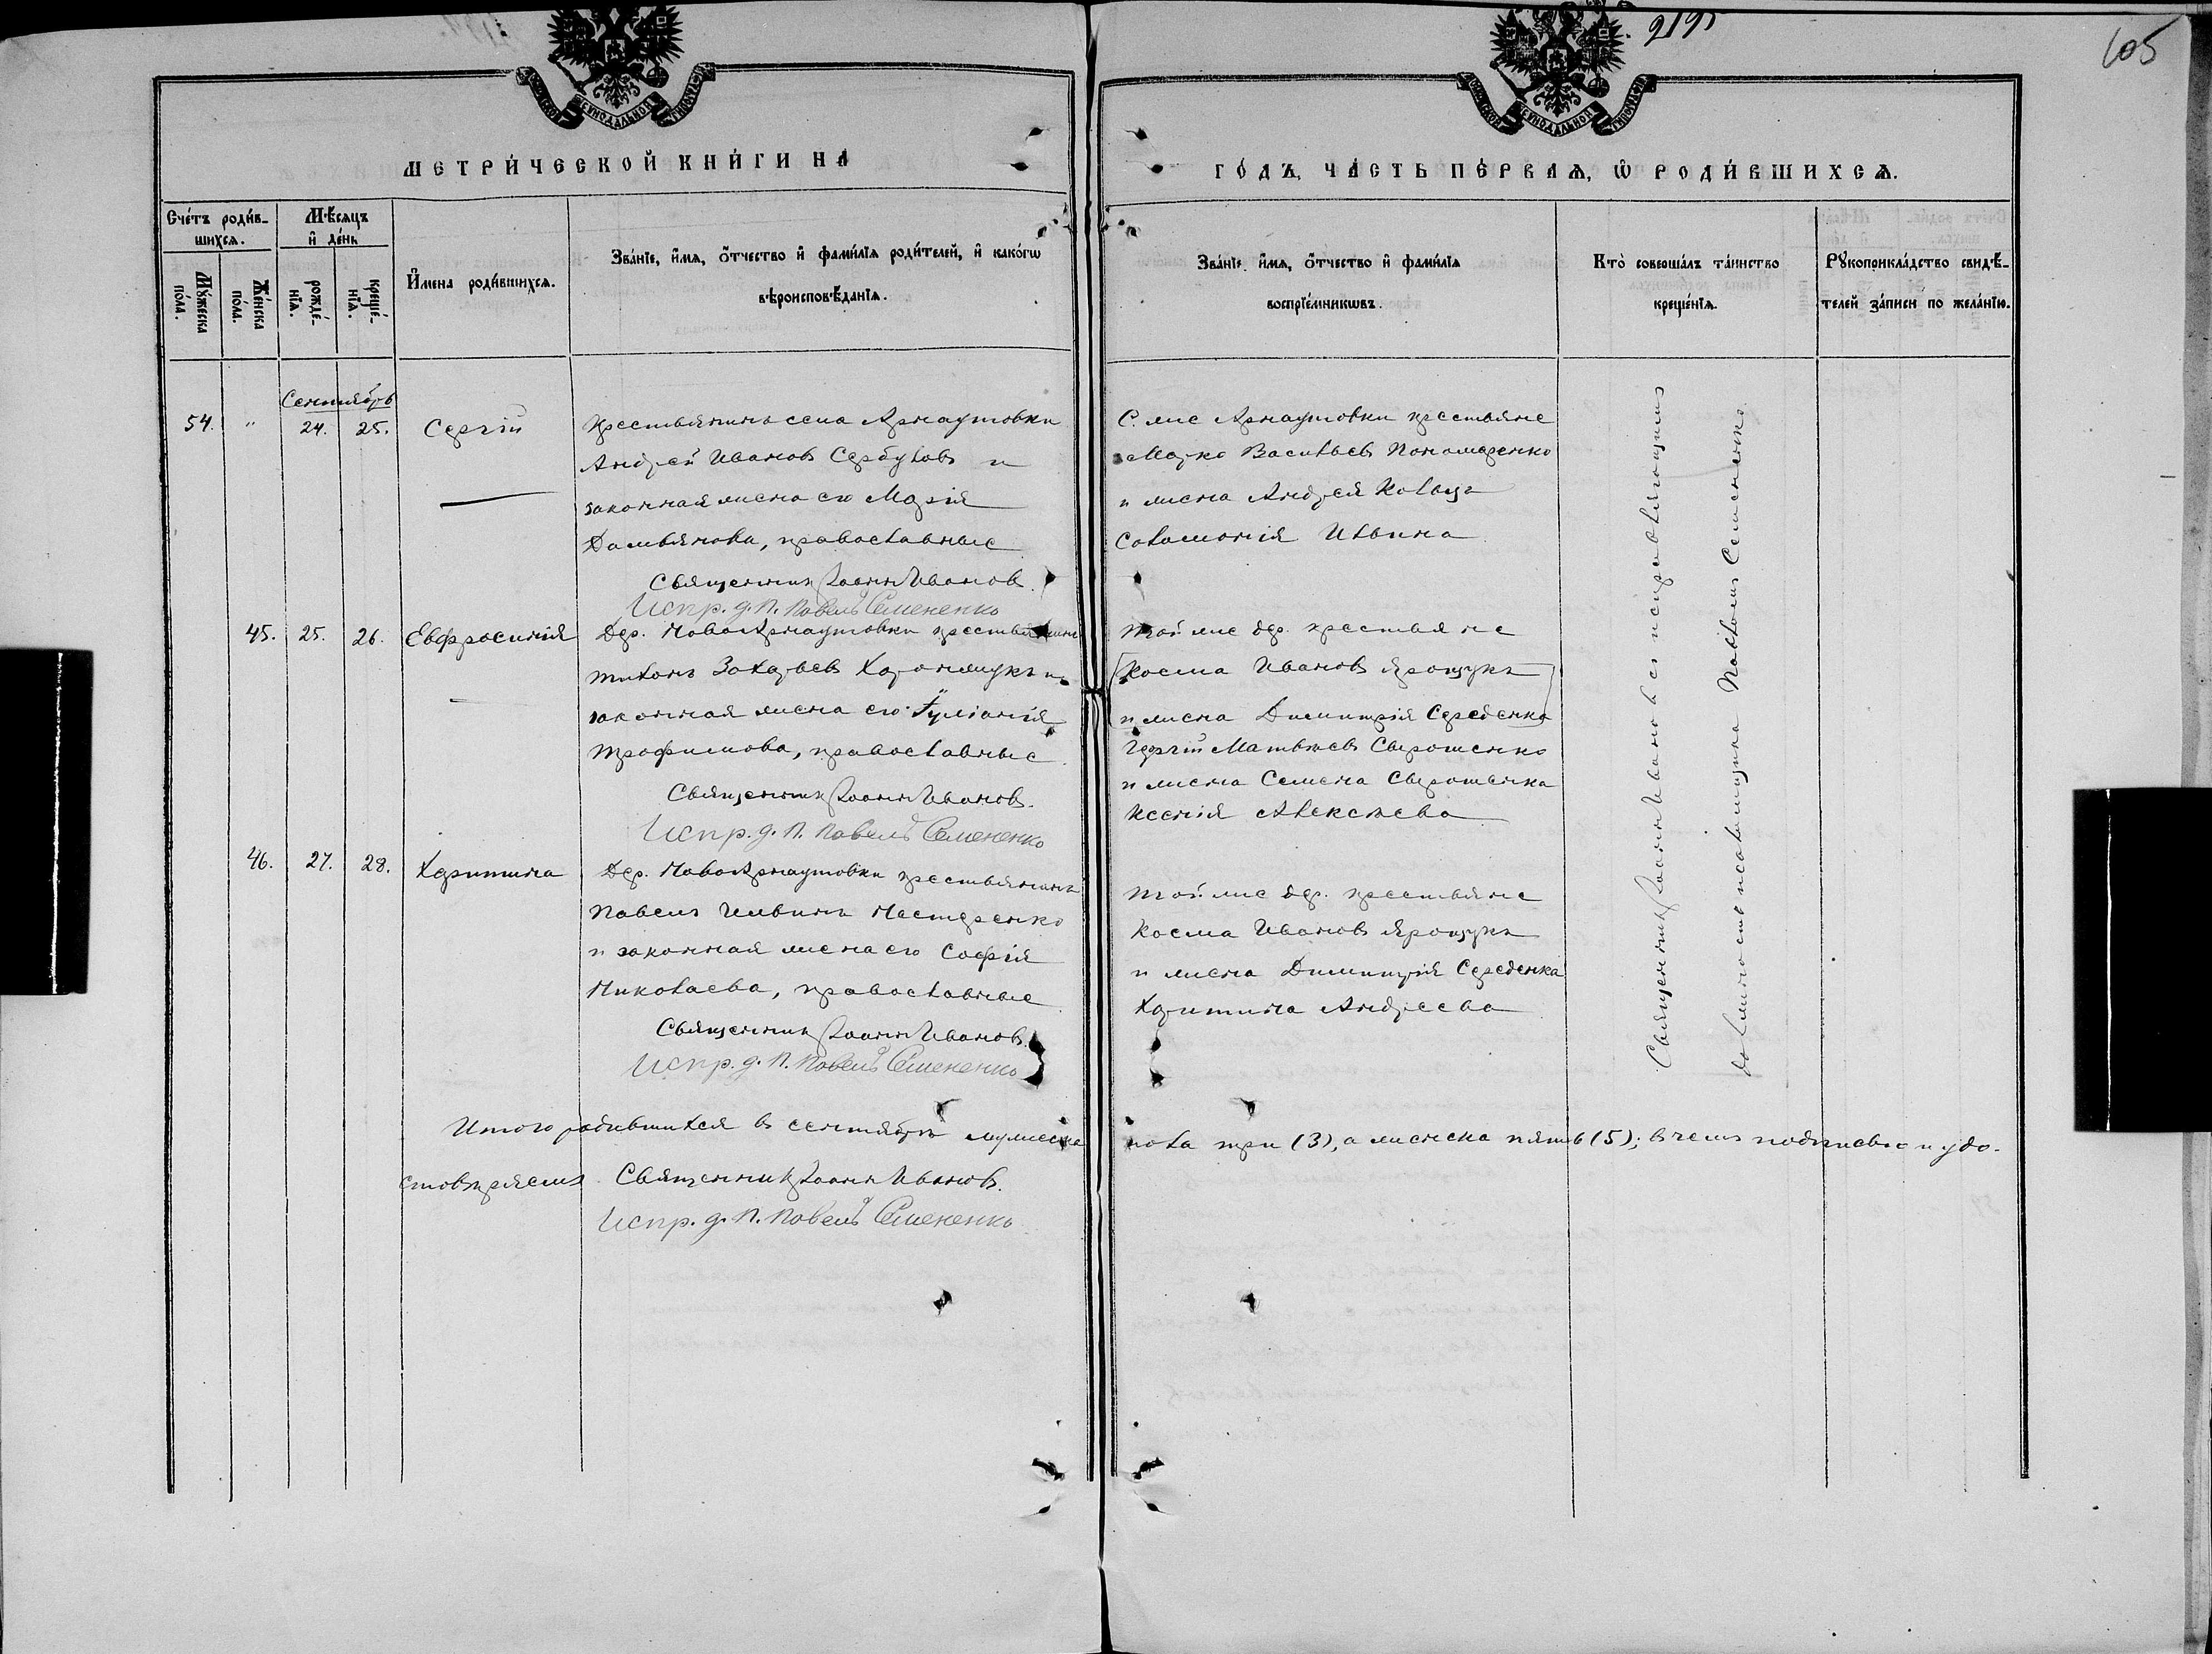 2191
105
МЕТРИ́ЧЕСКОЙ КНИ́ГИ НА̀
ГО́ДЪ, ЧА́СТЬ ПЕ́РВАѦ, Ѡ҆ РОДИ́ВШИХСѦ.
Сче́тъ роди́в-
шихсѧ.
Мѹ́жеска по́ла.
Же́нска по́ла.
Мѣ́сѧцъ
и҆ де́нь
рожде́-
нїѧ.
креще́-
нїѧ.
И҆мена роди́вшихсѧ.
Зва́нїе, и҆́мѧ, ѻ҆́тчество и҆ фами́лїѧ роди́телей, и҆ како́гѡ
вѣроисповѣ́данїѧ.
Зва́нїе, и҆́мѧ, ѻ҆́тчество и҆ фами́лїѧ
воспрїе́мникѡвъ.
Кто̀ соверша́лъ та́инство
креще́нїѧ.
Рѹкоприкла́дство свидѣ́-
телей за́писи по жела́нїю.
Сентябрь
54. " 24. 25. Сергій
Крестьянинъ села Арнаутовки
Андрей Ивановъ Сербуловъ и
законная жена его Марія
Дамьянова, православные
Священникъ Іоаннъ Ивановъ.
Испр. д. П. Павелъ Семененко
С. же Арнаутовки крестьяне
Марко Васильевъ Пономаренко
и жена Андрея Кольца
Соломонія Ильина
45. 25. 26. Евфросинія
Дер. Новоарнаутовки крестьянинъ
Тихонъ Захарьевъ Харонжукъ и
законная жена его Іуліанія
Трофимова, православные.
Священникъ Іоаннъ Ивановъ.
Испр. д. П. Павелъ Семененко
Той же дер. крестьяне
[Косма Ивановъ Ярощукъ
и жена Димитрія Середенка]
Георгій Матвѣевъ Сырошенко
и жена Семена Сырошенка
Ксенія Алексѣева
46. 27. 28. Харитина
Дер. Новоарнаутовки крестьянинъ
Павелъ Ильинъ Нестеренко
и законная жена его Софія
Николаева, православные
Священникъ Іоаннъ Ивановъ.
Испр. д. П. Павелъ Семененко
Той же дер. крестьяне
Косма Ивановъ Ярощукъ
и жена Димитрія Середенка
Харитина Андреева
Священникъ Іоаннъ Ивановъ съ исправляющимъ
должность псаломщика Павломъ Семененко.
Итого родившихся въ сентябрѣ мужеска пола три (3), а женска пять (5); въ чемъ подписью и удо-
стовѣряемъ. Священникъ Іоаннъ Ивановъ.
Испр. д. П. Павелъ Семененко